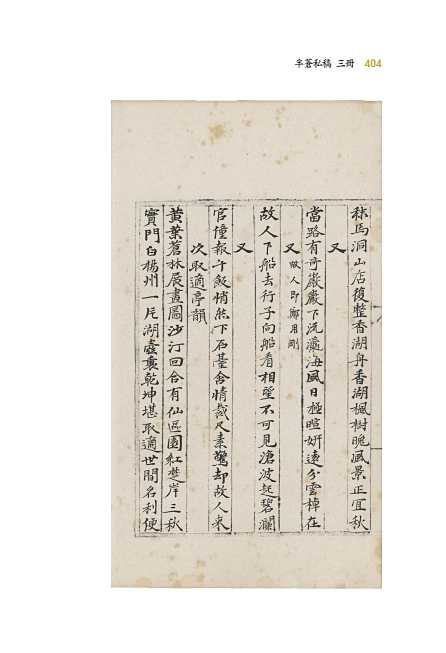 半蒼私稿 三冊 404
秣馬洞山店復整香湖舟香湖楓樹晚風景正宜秋
又
當路有奇巖巖下沉瀛海風日極暄姸遠分雲棹在
又 故人卽鄭用剛
故人下船去行子向船看相望不可見滄波起碧瀾
又
官僮報午飯悄然下石臺含情裁尺素驚却故人來
次取適亭韻
黃葉蒼林展畫圖沙汀回合有仙區園紅楚岸三秋
實門白楊州一片湖壺裏乾坤堪取適世間名利便